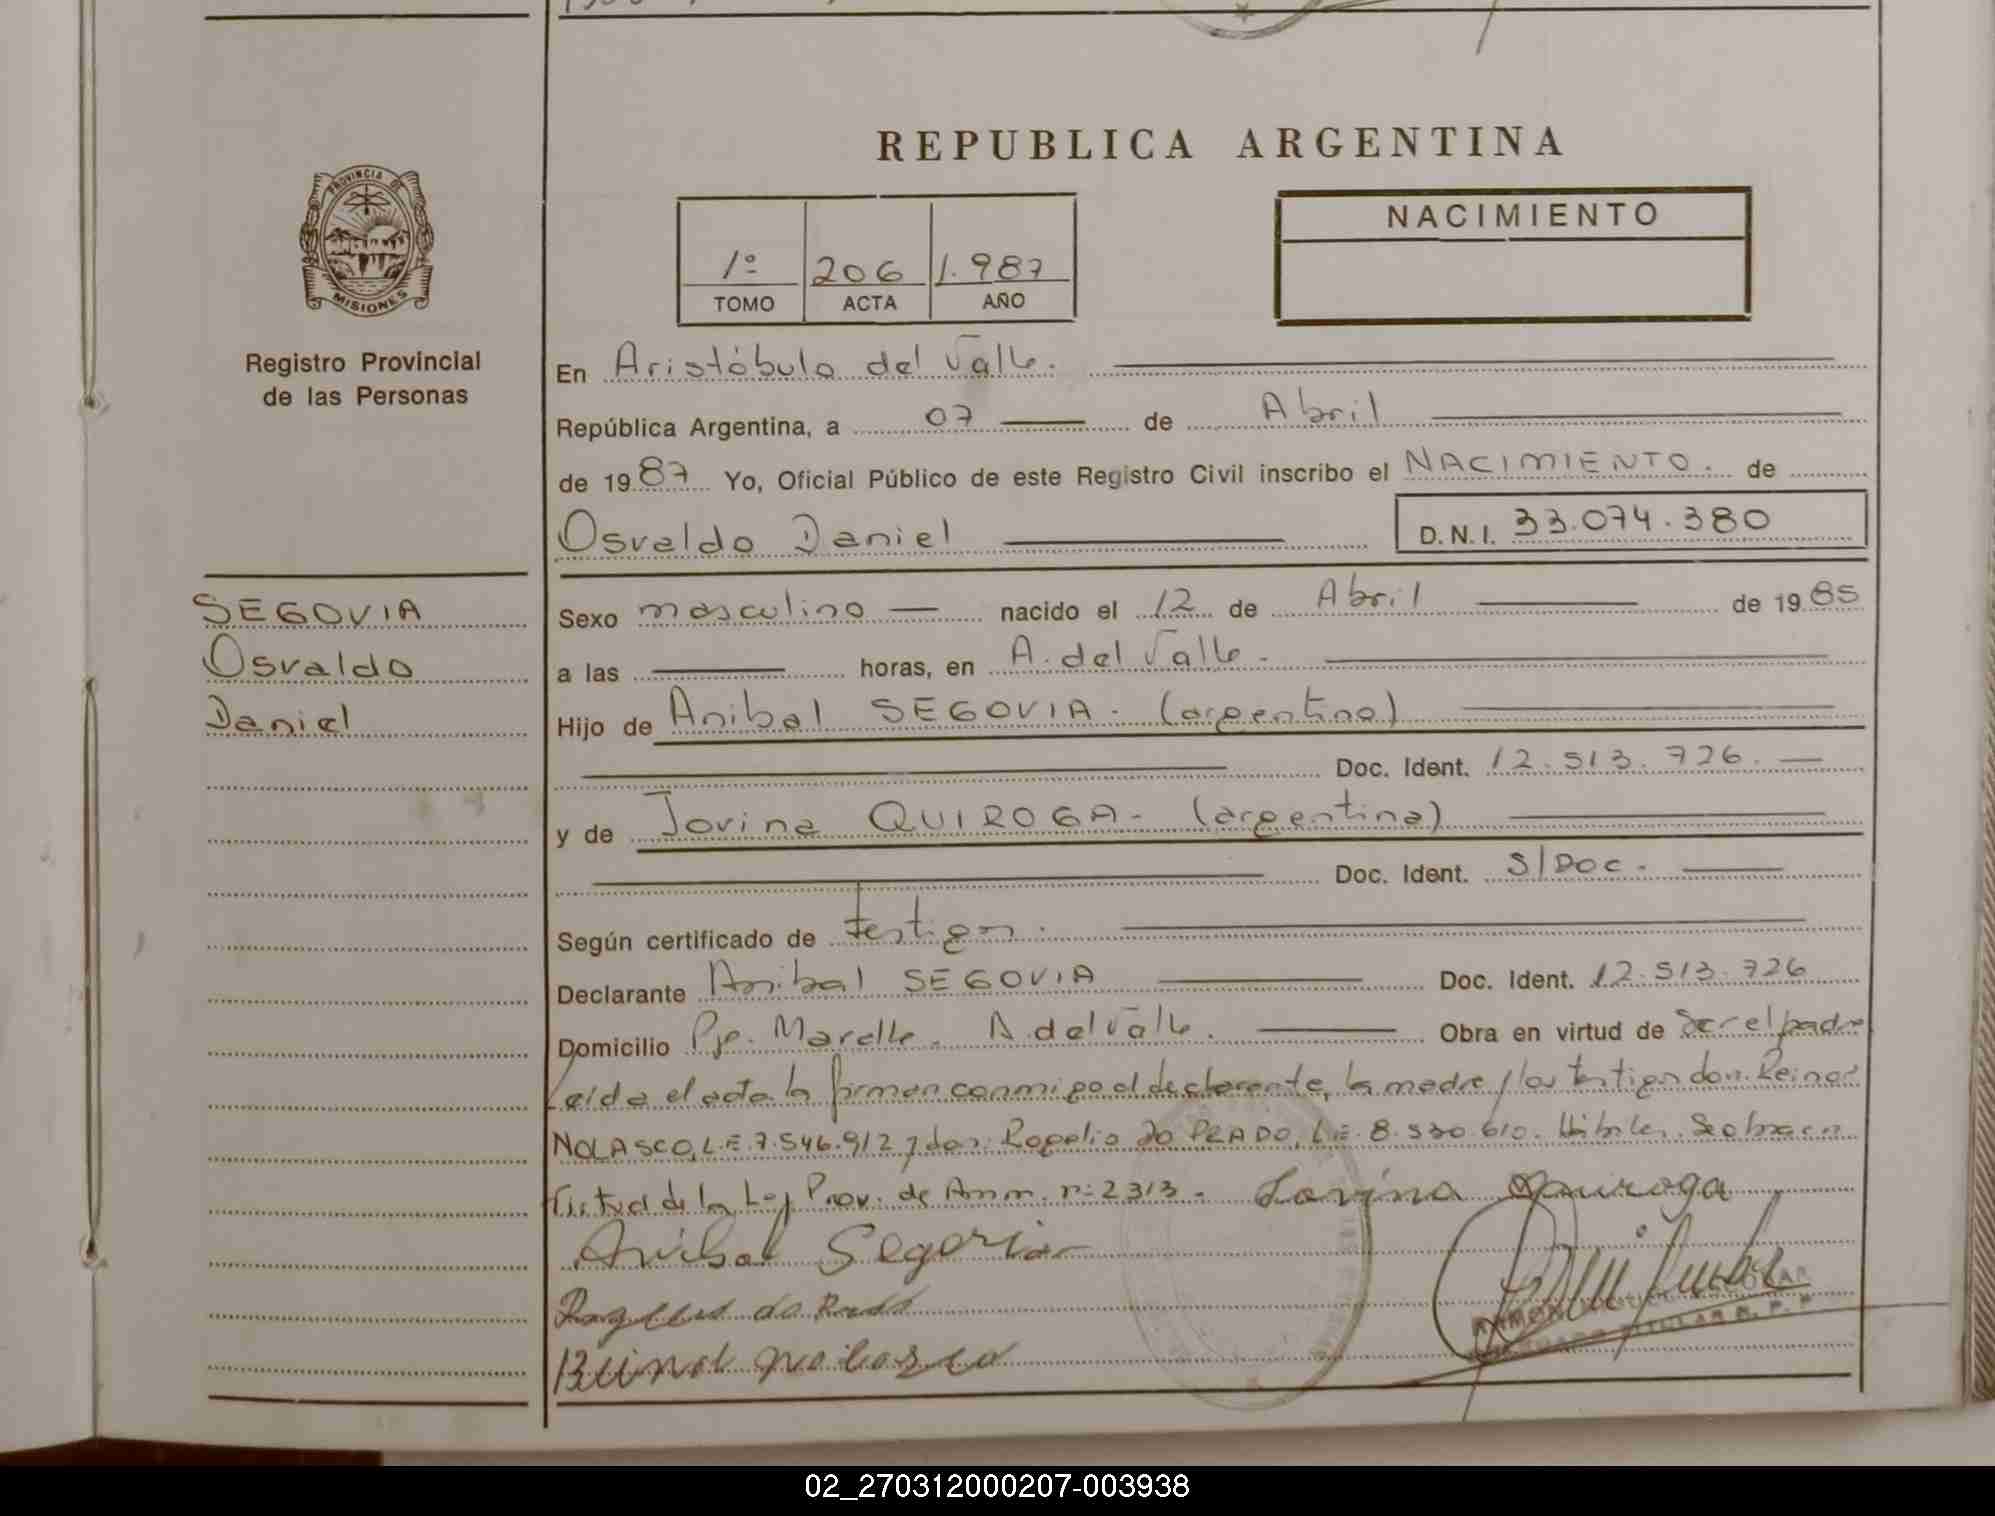 REPUBLICA ARGENTINA
PROVINCIA DE
MISIONES
Registro Provincial
de las Personas
1º 206 1.987
TOMO ACTA AÑO
NACIMIENTO
En Aristóbulo del Valle.
República Argentina, a 07 de Abril
de 1987 Yo, Oficial Público de este Registro Civil inscribo el NACIMIENTO. de
Osvaldo Daniel D.N.I. 33.074.380
SEGOVIA
Osvaldo
Daniel
Sexo masculino nacido el 12 de Abril de 1985
a las horas, en A. del Valle.
Hijo de Anibal SEGOVIA. (argentino)
Doc. Ident. 12.513.726.
y de Jovina QUIROGA. (argentina)
Doc. Ident. S/DOC.
Según certificado de testigos.
Declarante Anibal SEGOVIA Doc. Ident. 12.513.726
Domicilio Pje. Marelle. A. del Valle. Obra en virtud de Ser el padre
Leida el acta la firman conmigo el declarante, la madre y los testigos don: Reinor
NOLASCO, L.E. 7.546.912 y don: Rogelio Do PRADO, L.E. 8.530.610. Hábiles. Se obra en
virtud de la Ley Prov. de Amn. nº 2313. Jovina Quiroga
Anibal Segovia
do
nolasco
TITULAR R. P. P.
02_270312000207-003938